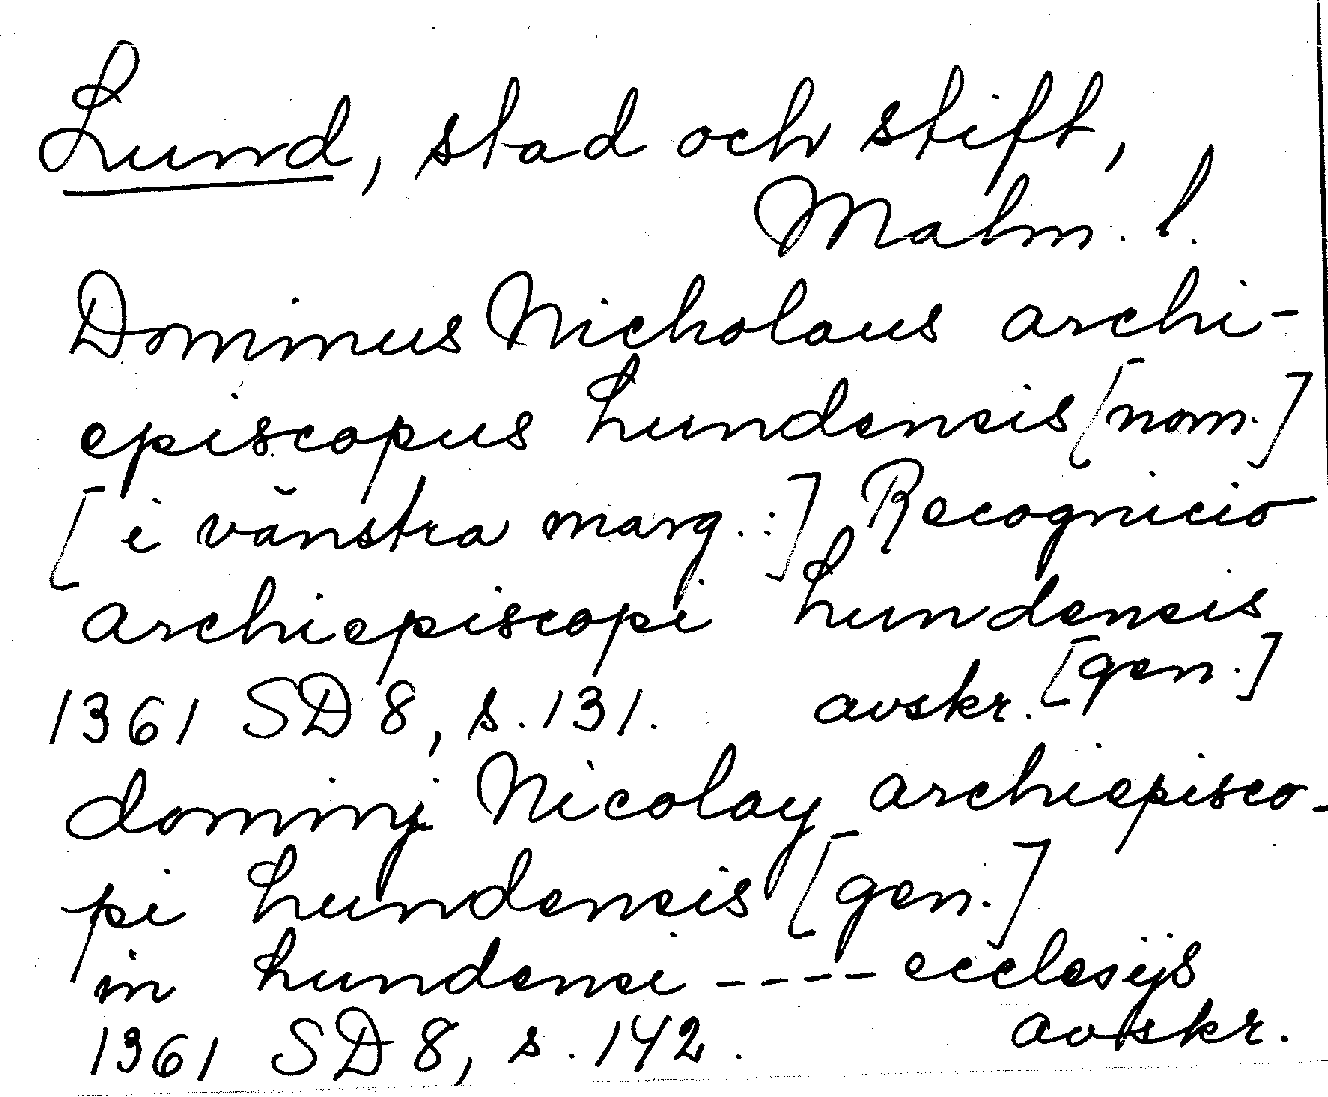 Lund, stad och stift,
Malm. l.
Dominus Nicholaus archi-
episcopus Lundensis [nom.]
[i vänstra marg.:] Recognicio
archiepiscopi Lundensis
[gen.]
1361 SD 8, s. 131. avskr.
dominj Nicolay archiepisco-
pi Lundensis [gen.]
in Lundensi ---- ecclesijs
1361 SD 8, s. 142. avskr.